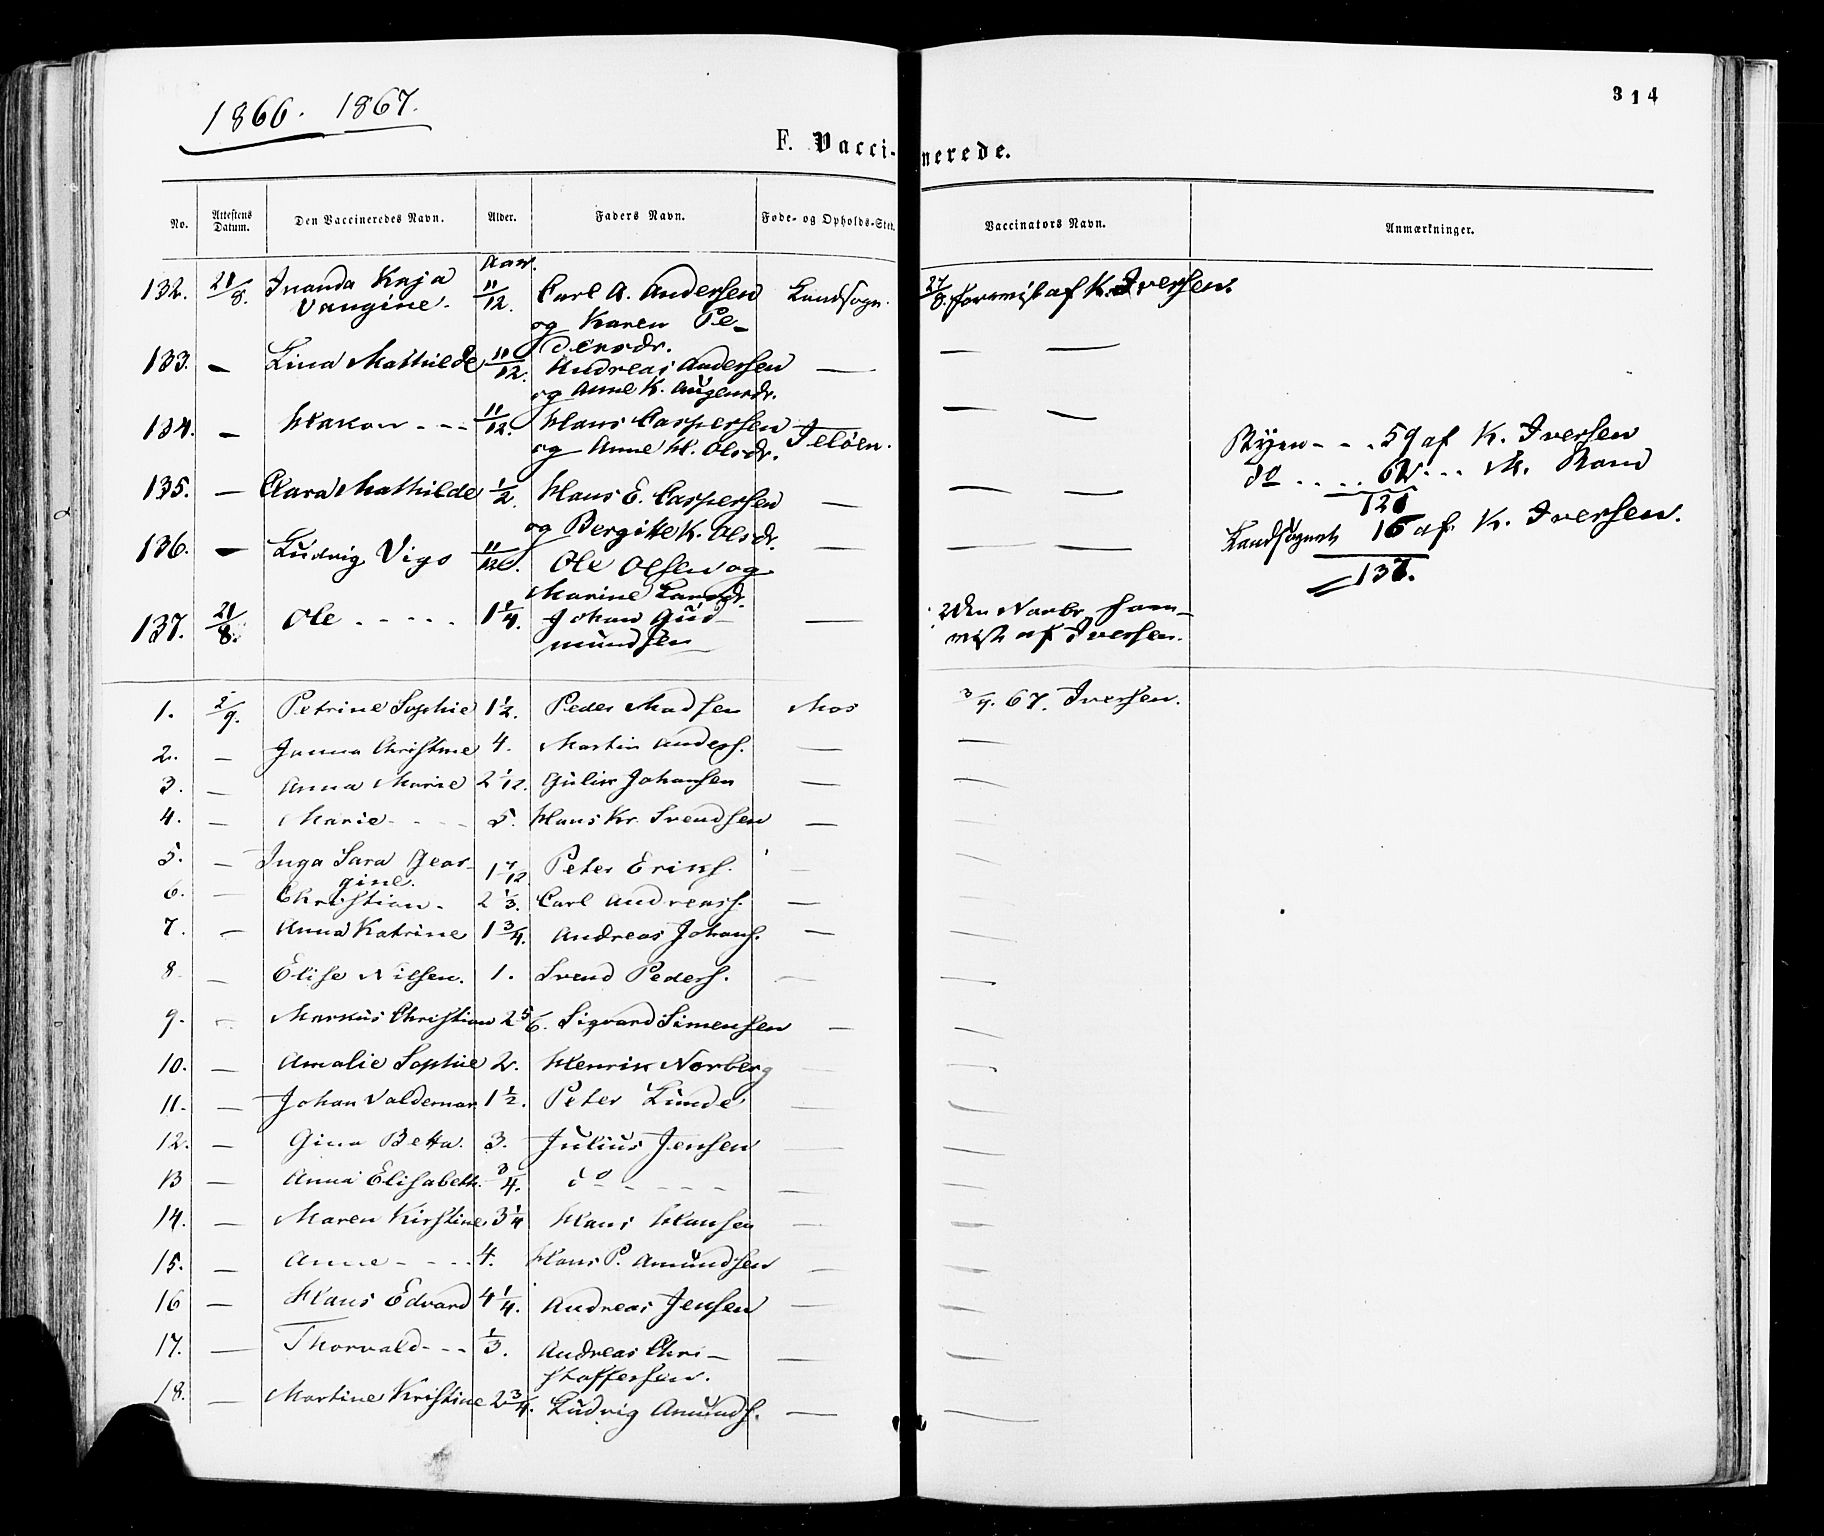 1866. 1867.
314
F. Vaccinerede.
No. Attestens Datum. Den Vaccineredes Navn. Alder. Faders Navn. Føde- og Opholds-Sted. Vaccinators Navn. Anmærkninger.
Aar.
132. 21/8. Inanda Kaja 11/12. Carl A. Andersen Landsogn. 27/8. forevist af K. Iversen.
Vangine. og Karen Pe-
dersdr.
133. — Lina Mathilde 11/12. Andreas Andersen — — —
og Anne K. Augensdr.
134. — Hakon - - - 11/12. Hans Caspersen Jeløen. — —
og Anne H. Olsdr.
Byen - - - 59 af K. Iversen
do . . . . . 62 - - - M. Rom
121
135. — Clara Mathilde 1/2. Hans E. Caspersen — — —
og Bergitte K. Olsdr.
Landsognet 16 af K. Iversen.
137.
136. — Ludvig Vigo 11/12. Ole Olsen og — — —
Marine Larsdr.
137. 21/8. Ole - - - - - 1 1/4. Johan Gud- — Uden Navn forevist af Iversen.
mundsen
1. 2/9. Petrine Sophie 1 1/2. Peder Madsen Mos 3/9. 67. Iversen.
2. — Janna Christine 4. Martin Anders. — —
3. — Anna Marie 2 1/12. Gulik Johansen — —
4. — Marie - - - - 5. Hans Kr. Svendsen — —
5. — Inga Sara Geor- 1 7/12 Peter Eriks. — —
gine.
6. — Christian. - 2 1/3. Carl Andreass. — —
7. — Anna Katrine 1 3/4. Andreas Johans. — —
8 — Elise Nilsen. 1. Svend Peders. — —
9. — Markus Christian 2 5/6. Sigvard Simensen — —
10. — Amalie Sophie 2. Henrik Norberg — —
11. — Johan Valdemar 1 1/2. Peter Lunde — —
12. — Gina Betta. 3. Julius Jensen — —
13 — Anna Elisabeth. 3/4. do - - - - — —
14. — Maren Kirstine 3 1/4 Hans Hansen — —
15. — Anne - - - - 4. Hans P. Amundsen — —
16 — Hans Edvard 4 1/4. Andreas Jensen — —
17. — Thorvald - - - 1/3. Andreas Chri- — —
stoffersen.
18. — Martine Kristine 2 3/4. Ludvig Amunds. — —